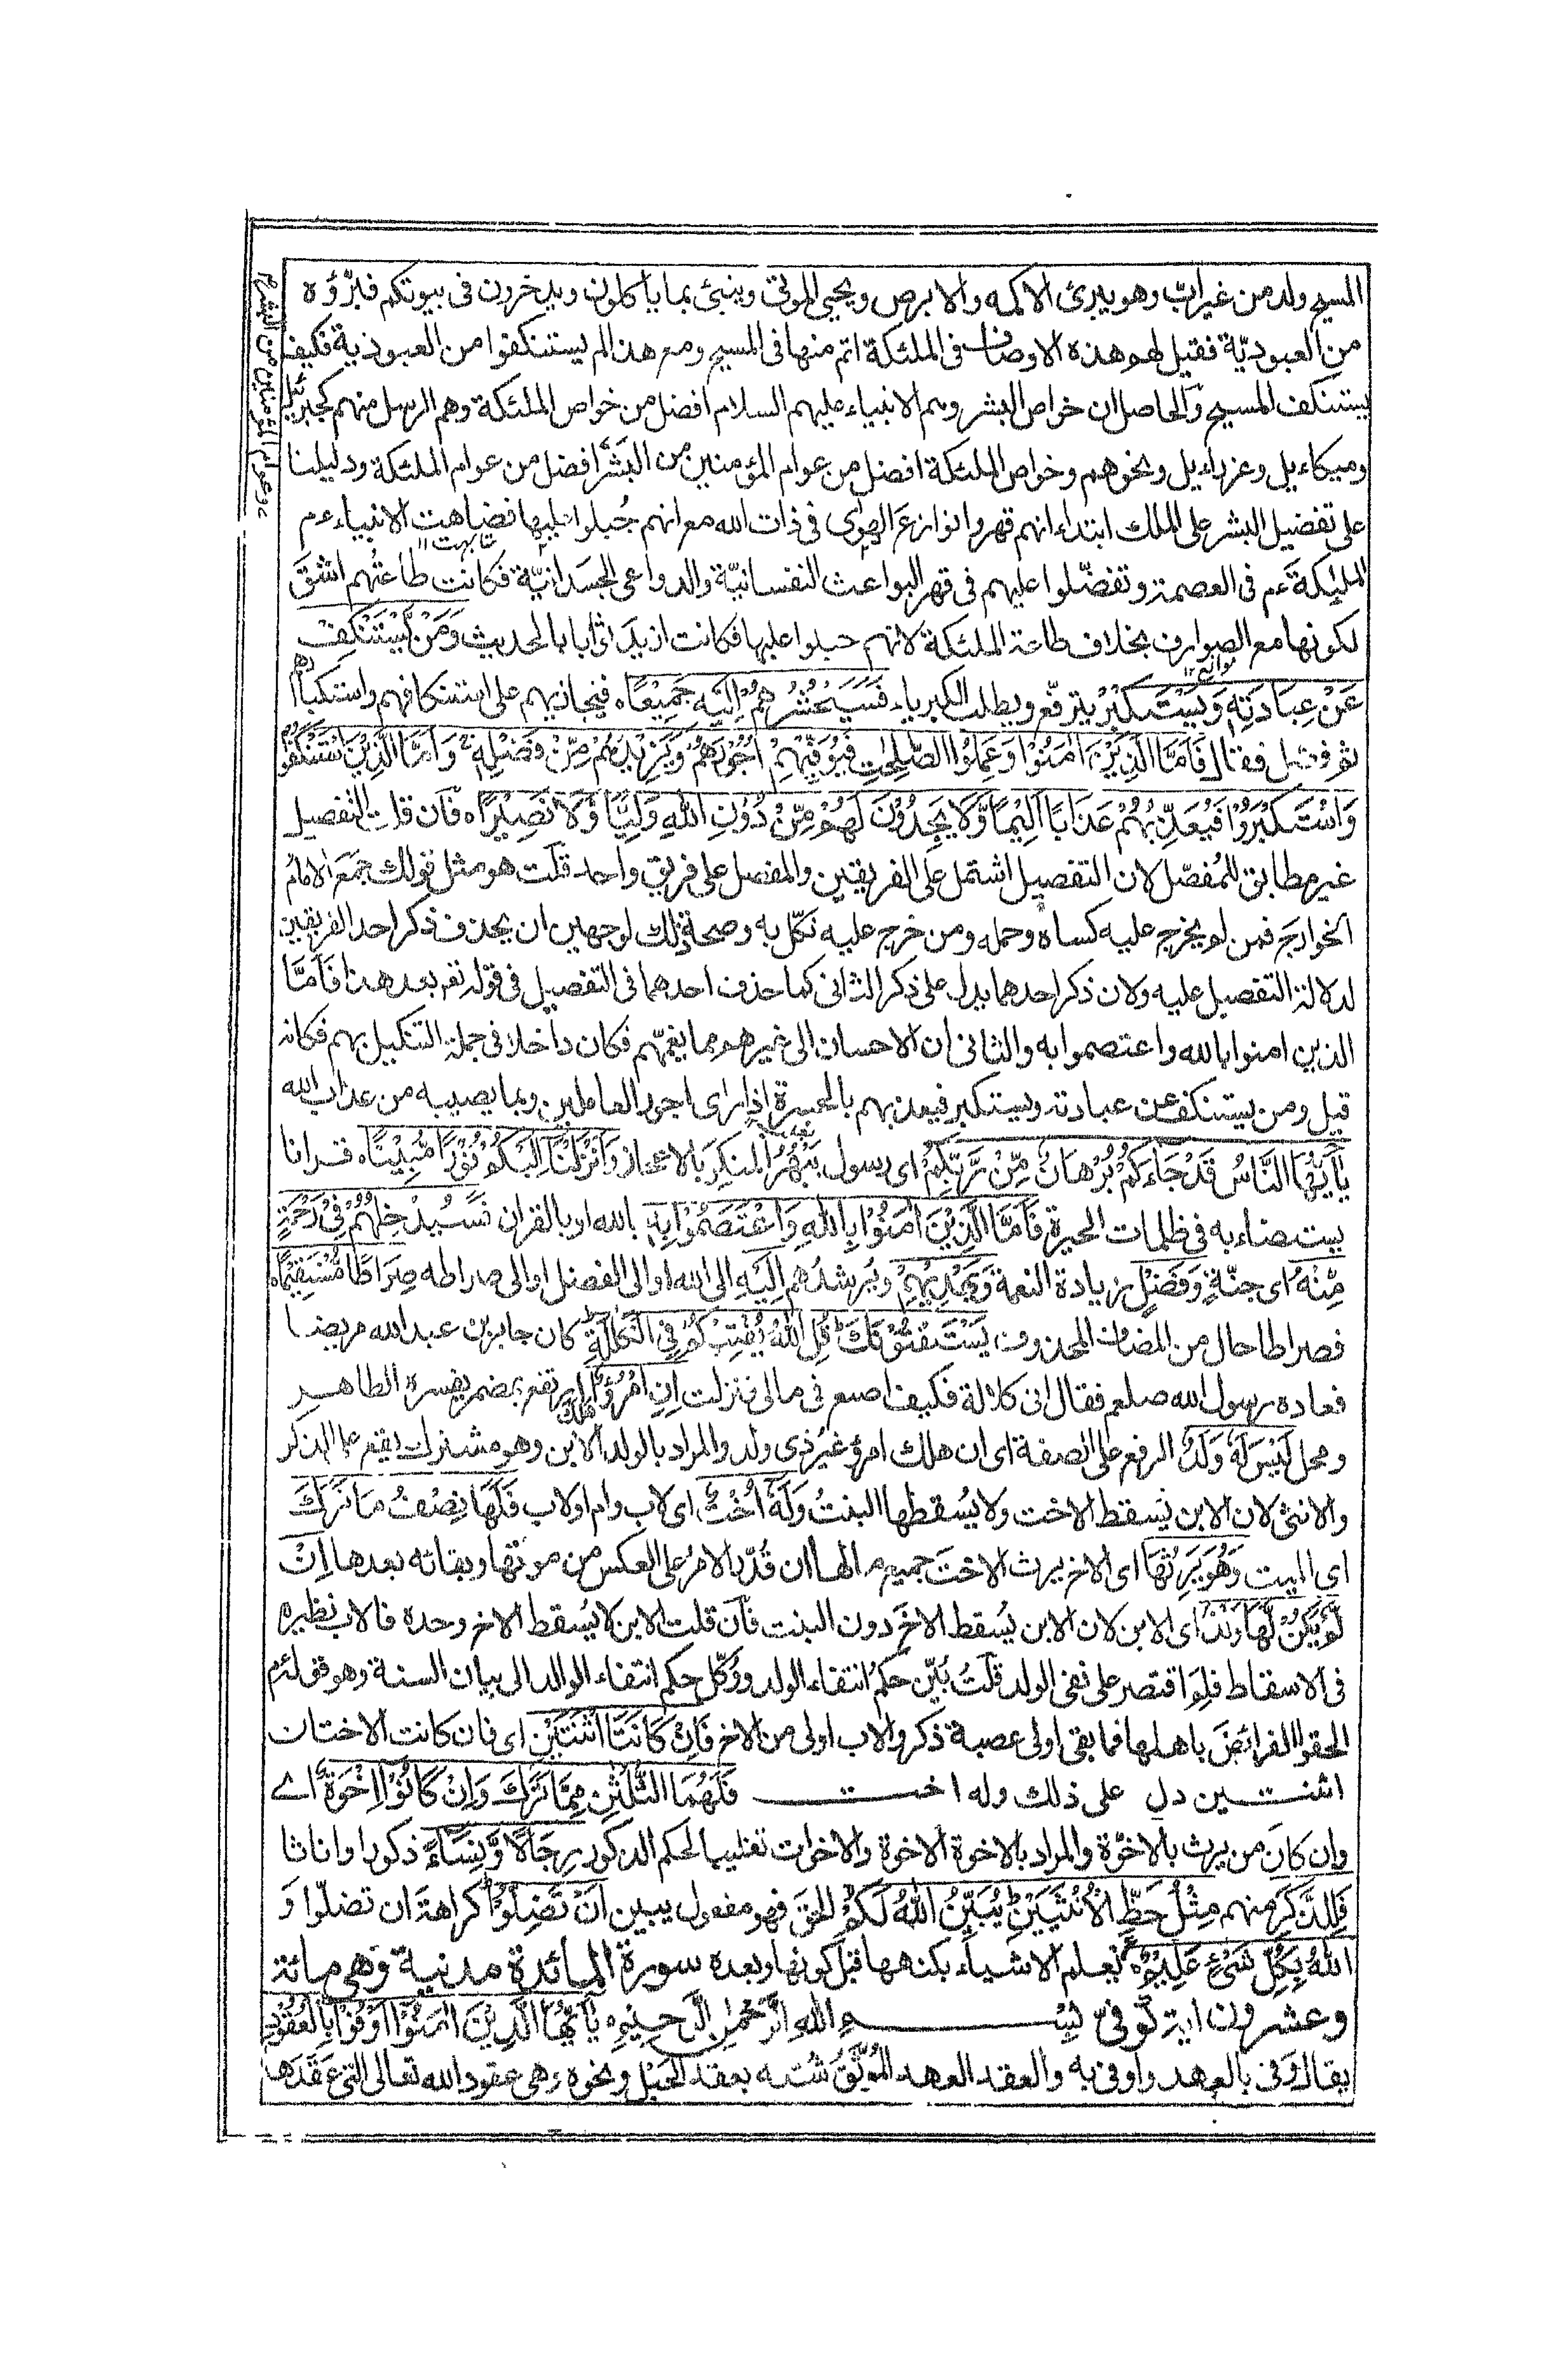 المسيح ولد من غير اب وهو يبرئ الاكمه والابرص ويحيي الموتى وينبئ بما ياكلون ويدخرون فى بيوتكم فبرّؤه
من العبوديّة فقيل لهم هذه الاوصاف فى الملئكة اتم منها فى المسيح ومع هذا لم يستنكفوا من العبودية فكيف
يستنكف المسيح والحاصل ان خواص البشر وهم الانبياء عليهم السلام افضل من خواص الملئكة وهم الرسل منهم كجبرئيل
وميكاءيل وعزراءيل ونحوهم وخواص الملئكة افضل من عوام المؤمنين من البشر افضل من عوام الملئكة ودليلنا
على تفضيل البشر على الملك ابتداء انهم قهروا نوازع الهوى فى ذات الله مع انهم جُبلوا عليها فضاهت الانبياء عم
الملٰيكة عم فى العصمة وتفضّلوا عليهم فى قهر البواعث النفسانيّة والدواعى الجسدانيّة فكانت طاعتُهم اشقَ
لكونها مع الصوارف بخلاف طاعة الملئكة لانهم جبلوا عليها فكانت ازيدَ ثوابا بالحديث وَمَنْ يَّسْتَنْكِفْ
عَنْ عِبَادَتِهٖ وَيَسْتَكْبِرْ يترفّع ويطلب الكبرياء فَسَيَحْشُرُهُمْ اِلَيْهِ جَمِيْعًا ٥ فيجازيهم على استنكافهم واستكبارهم
ثم فصّل فقال فَاَمَّا الَّذِيْنَ اٰمَنُوْا وَعَمِلُوا الصّٰلِحٰتِ فَيُوَفِّيْهِمْ اُجُوْرَهُمْ وَيَزِيْدُهُمْ مِّنْ فَضْلِهٖ وَاَمَّا الَّذِيْنَ اسْتَنْكَفُوْا
وَاسْتَكْبَرُوْا فَيُعَذِّبُهُمْ عَذَابًا اَلِيْمًا وَّلَا يَجِدُوْنَ لَهُمْ مِّنْ دُوْنِ اللهِ وَلِيًّا وَّلَا نَصِيْرًا ٥ فان قلت التفصيل
غير مطابق للمُفصّل لان التفصيل اشتمل على الفريقين والمفصل على فريق واحد قلت هو مثل قولك جَمَعَ الامامُ
الخوارجَ فمن لم يخرج عليه كساه وحمله ومن خرج عليه نكّل به وصحة ذلك لوجهين ان يحذف ذكر احد الفريقين
لدلالة التفصيل عليه ولان ذكر احدهما يدل على ذكر الثانى كما حذف احدهما فى التفصيل فى قوله تعم بعد هذا فَاَمَّا
الذين امنوا بالله واعتصموا به والثانى ان الاحسان الى غيرهم مما يغمّهم فكان داخلا فى جملة التنكيل بهم فكانه
قيل ومن يستنكف عن عبادته ويستكبر فيعذبهم بالحسرة اذا راى اجور العاملين وبما يصيبه من عذاب الله
يٰٓاَيُّهَا النَّاسُ قَدْ جَآءَكُمْ بُرْهَانٌ مِّنْ رَّبِّكُمْ اى رسول يَبْهَرُ المنكِرَ بالاعجاز وَاَنْزَلْنَآ اِلَيْكُمْ نُوْرًا مُّبِيْنًا ٥ قرانا
يستضاء به فى ظلمات الحيرة فَاَمَّا الَّذِيْنَ اٰمَنُوْا بِاللهِ وَاعْتَصَمُوْا بِهٖ بالله او بالقران فَسَيُدْخِلُهُمْ فِىْ رَحْمَةٍ
مِّنْهُ اى جنّةٍ وَفَضْلٍ زيادة النعمة وَيَهْدِيْهِمْ ويُرشدُهم اِلَيْهِ الى الله او الى الفضل او الى صراطه صِرَاطًا مُّسْتَقِيْمًا ٥
فصراطا حال من المضاف المحذوف يَسْتَفْتُوْنَكَ قُلِ اللهُ يُفْتِيْكُمْ فِى الْكَلٰلَةِ كان جابر بن عبد الله مريضا
فعاده رسول الله صلعم فقال انى كلالة فكيف اصنع فى مالى فنزلت اِنِ امْرُؤٌا هَلَكَ ارتفع بمضمر يفسره الظاهر
ومحل لَيْسَ لَهٗ وَلَدٌ الرفع على الصفة اى ان هلك امرؤ غيرُ ذى ولد والمراد بالولد الابن وهو مشترك يقع على الذكر
والانثى لان الابن يسقط الاخت ولا يُسقطها البنتُ وَلَهٗٓ اُخْتٌ اى لاب وام او لاب فَلَهَا نِصْفُ مَا تَرَكَ
اى الميت وَهُوَ يَرِثُهَآ اى الاخ يرث الاختَ جميع مالها ان قُدّر الامرُ على العكس من موتها وبقائه بعدها اِنْ
لَّمْ يَكُنْ لَّهَا وَلَدٌ اى الابن لان الابن يُسقط الاخَ دون البنت فان قلت الابن لا يُسقط الاخ وحده فالاب نظيره
فى الاسقاط فلِمَ اقتصر على نفى الولد قلتُ بَيّن حكمَ انتفاء الولد ووُكّل حكم انتفاء الوالد الى بيان السنة وهو قوله عم
الحقوا الفرائضَ باهلها فما بقى اولى عصبة ذكر والاب اولى من الاخ فَاِنْ كَانَتَا اثْنَتَيْنِ اى فان كانت الاختان
اثنتين دل على ذلك وله اخت فَلَهُمَا الثُّلُثٰنِ مِمَّا تَرَكَ وَاِنْ كَانُوْٓا اِخْوَةً اے
وان كان من يرث بالاخوّة والمراد بالاخوة الاخوة والاخوات تغليبا لحكم الذكور رِجَالًا وَّنِسَآءً ذكورا واناثا
فَلِلذَّكَرِ منهم مِثْلُ حَظِّ الْاُنْثَيَيْنِ يُبَيِّنُ اللهُ لَكُمْ الحق فهو مفعول يبين اَنْ تَضِلُّوْا كراهةَ ان تضلّوا وَ
اللهُ بِكُلِّ شَىْءٍ عَلِيْمٌ ٥ يعلم الاشياء بكنهها قبل كونها وبعده سورة المائدة مدنية وهى مائة
وعشرون اية كوفىّ بِسْمِ اللهِ الرَّحْمٰنِ الرَّحِيْمِ ٥ يٰٓاَيُّهَا الَّذِيْنَ اٰمَنُوْٓا اَوْفُوْا بِالْعُقُوْدِ
يقال وَفٰى بالعهد واوفى به والعقد العهد المُوَثَّقُ شُبّه بعقد الحَبْل ونحوه وهى عقود الله تعالى التى عَقَدَها
وعوام المؤمنين من البشر
موانع ١٢
شابهت ١١